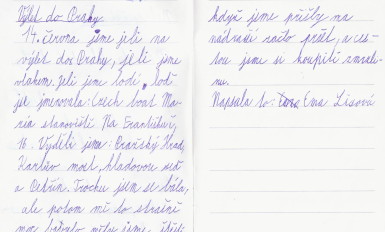 Výlet do Prahy.
14. června jsme jeli na
výlet do Prahy, jeli jsme
vlakem. Jeli jsme lodí, lodí
se jmenovala: Czech boat Ma-
ria stanoviště Na Františku,
16. Viděli jsme: Pražský hrad,
Karlův most, hladovou zeď
a Petřín. Trochu jsem se bála,
ale potom mě to strašně
moc bavilo
když jsme přišly na
nádraží začlo pršet, a ces-
tou jsme si koupili zmrzli-
nu.
Napsala to: Ema Lisová